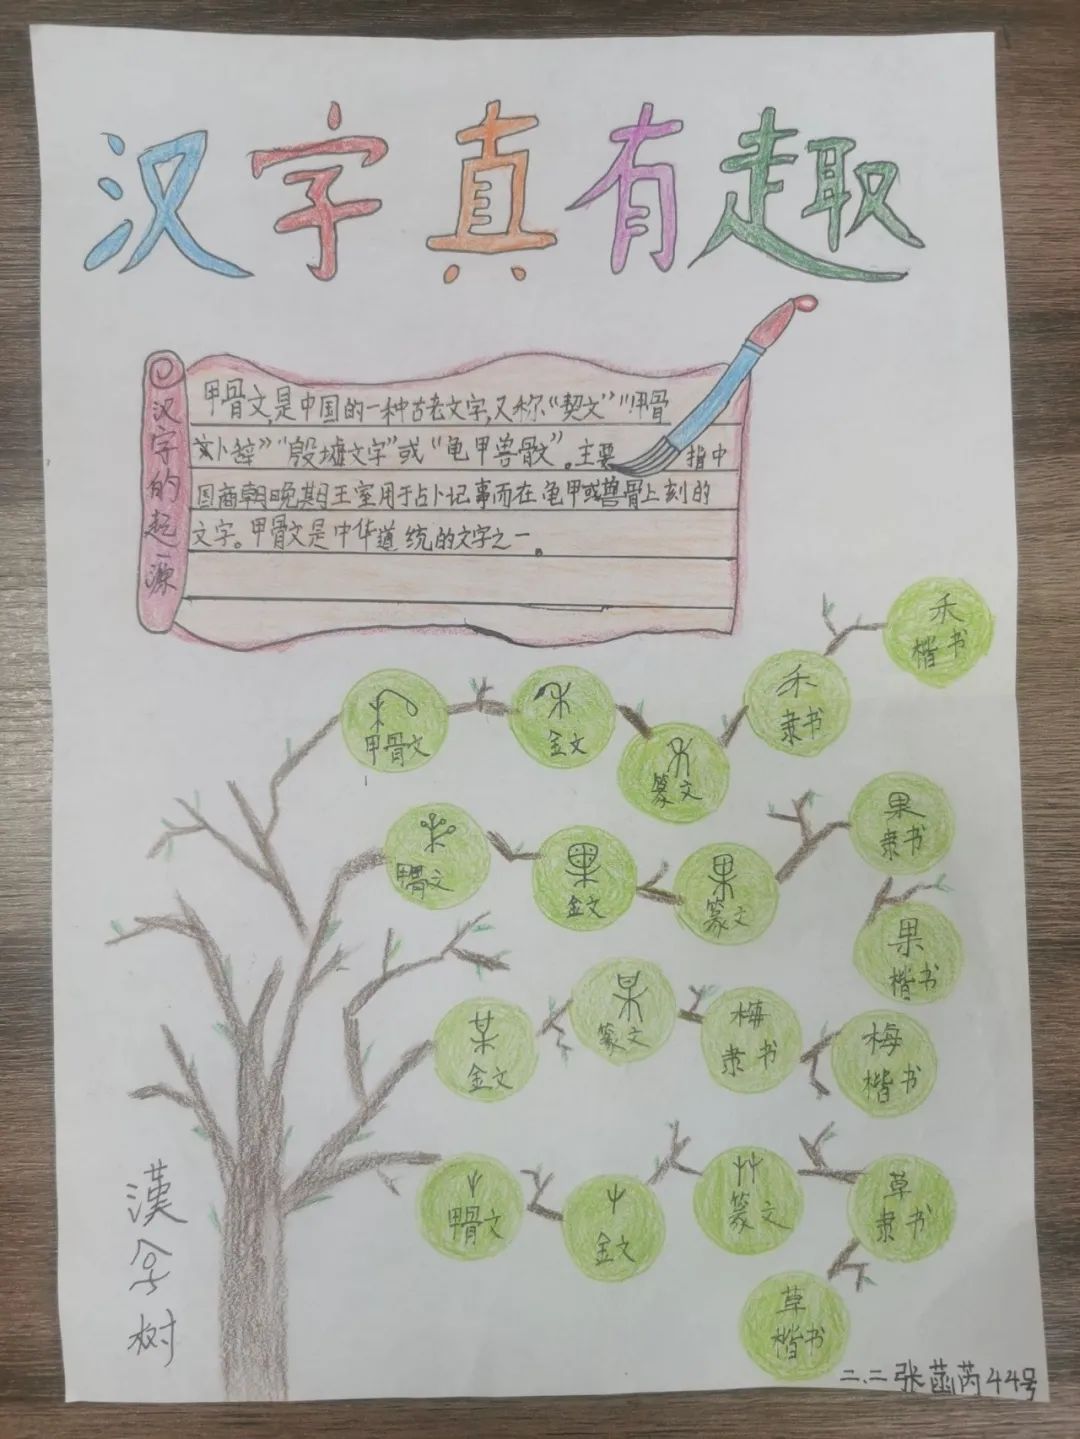 汉字真有趣
汉字的起源
甲骨文,是中国的一种古老文字,又称“契文”“甲骨
文卜辞”“殷墟文字”或“龟甲兽骨文”。主要指中
国商朝晚期王室用于占卜记事而在龟甲或兽骨上刻的
文字。甲骨文是中华道统的文字之一。
甲骨文
金文
篆文
禾
隶书
禾
楷书
甲骨文
金文
果
篆文
果
隶书
果
楷书
某
金文
某
篆文
梅
隶书
梅
楷书
甲骨文
金文
艸
篆文
草
隶书
草
楷书
漢字树
二.二张菡芮44号